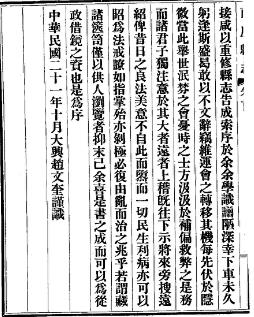 接咸以重修縣志告成索序於余余學識譾陋深幸下車未久
躬逢斯盛曷敢以不文辭竊維運會之轉移其機每先伏於隱
微當此舉世泯棼之會憂時之士方汲汲於補偏救弊之是務
而諸君子獨注意於其大者遠者上稽既往下示將來旁搜遠
紹俾昔日之良法美意不自此而翳而一切民生利病亦可以
昭爲法戒瞭如指掌殆亦剝極必復由亂而治之兆乎若謂藏
諸篋笥僅以供人瀏覽者抑末已余喜是書之成而可以爲從
政借鏡之資也是爲序
中華民國二十一年十月大興趙文奎謹識